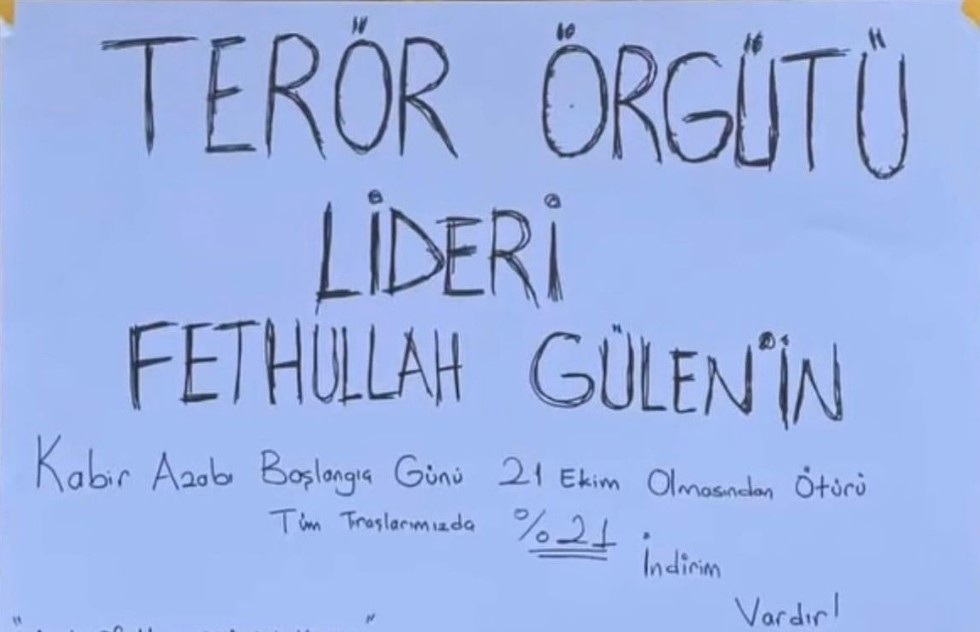 TERÖR ÖRGÜTÜ
LİDERİ
FETHULLAH GÜLEN'İN
Kabir Azabı Başlangıç Günü 21 Ekim Olmasından Ötürü
Tüm Traşlarımızda %21 İndirim
Vardır!